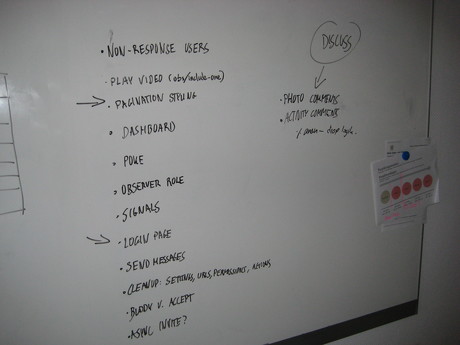 • NON-RESPONSE USERS
• PLAY VIDEO (obs/include-one)
→ • PAGINATION STYLING
• DASHBOARD
• POKE
• OBSERVER ROLE
• SIGNALS
→ • LOGIN PAGE
• SEND MESSAGES
• CLEANUP: SETTINGS, URLS, PERMISSIONS, ACTIONS
• BUDDY V. ACCEPT
• ASYNC INVITE?
DISCUSS
• PHOTO COMMENTS
• ACTIVITY COMMENTS